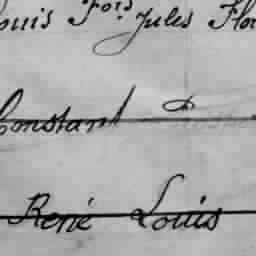 Louis Fois Jules Flo
Constant
René Louis